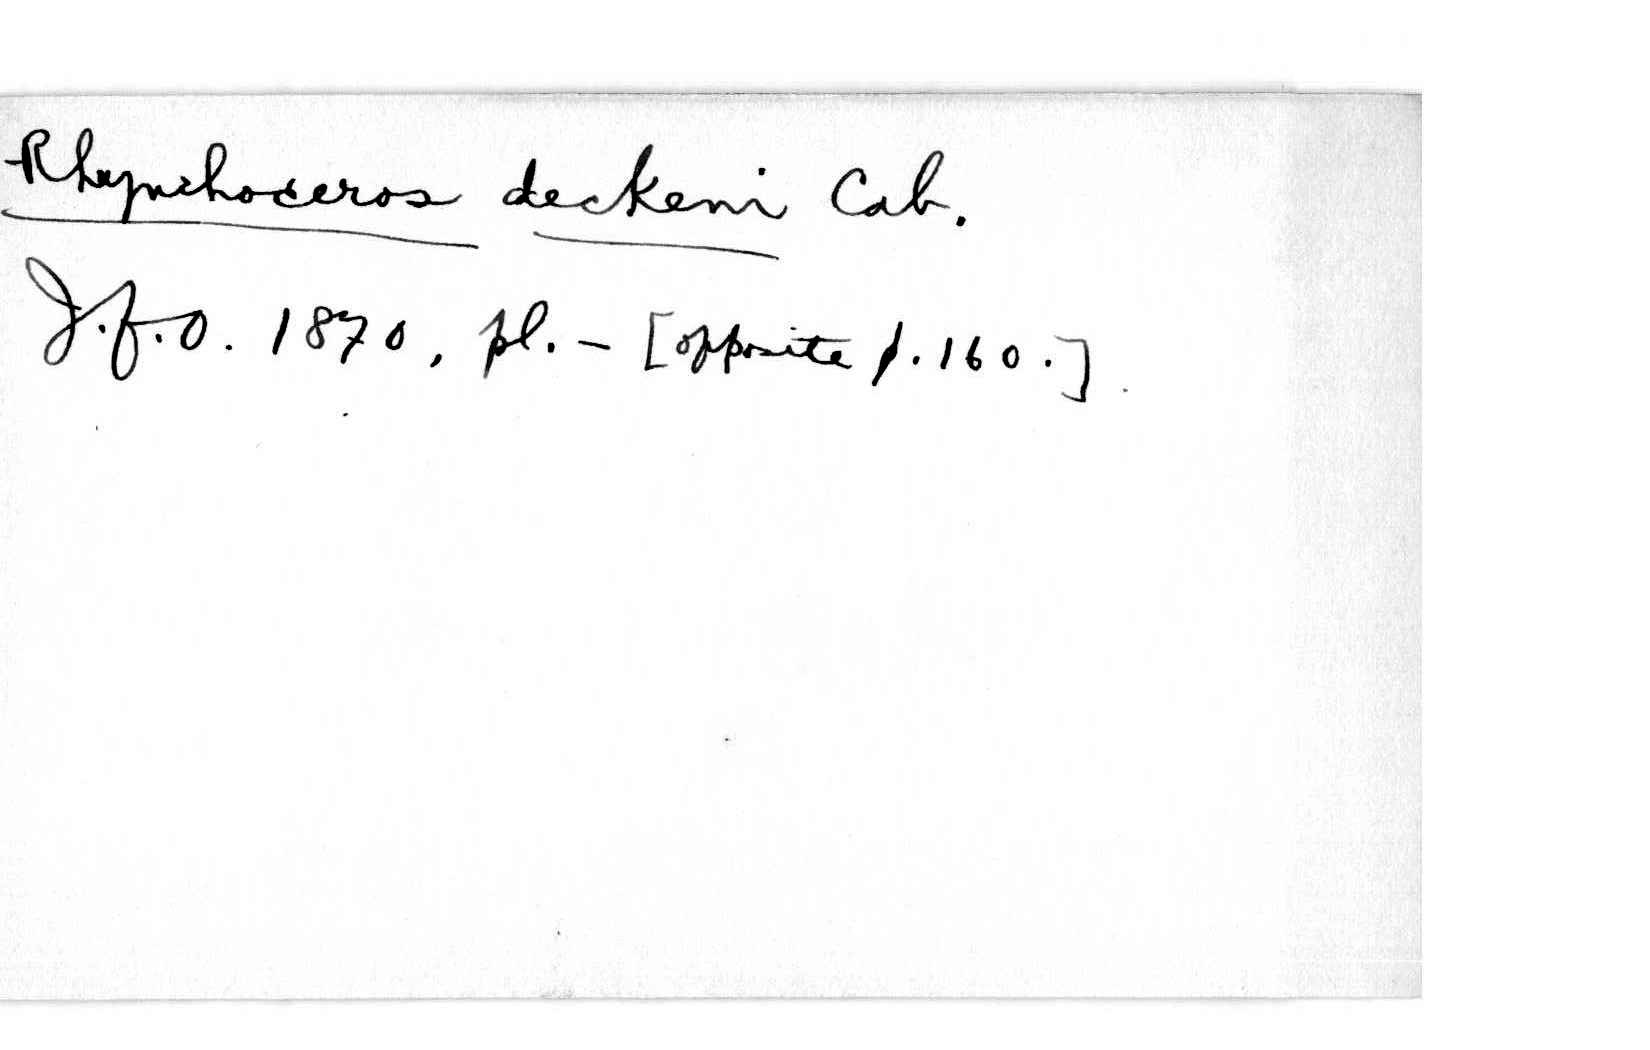 Rhynchoceros deckeni Cab.
J.f.O. 1870, pl. – [opposite p. 160.]